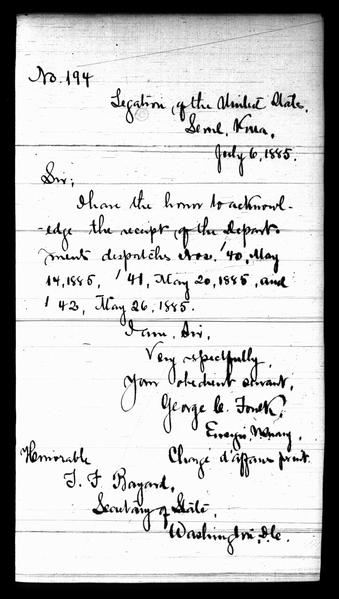 No. 194
Legation of the United States,
Seoul, Korea,
July 6, 1885.
Sir;
I have the honor to acknowl-
-edge the receipt of the Depart-
ments despatches Nos. 40, May
14, 1885, 41, May 20, 1885, and
42, May 26, 1885.
I am, Sir,
Very respectfully,
Your obedient servant,
George C. Foulk,
Ensign, U.S. Navy,
Honorable
Charge d'affaires
T. F. Bayard,
Secretary of State,
Washington, D.C.